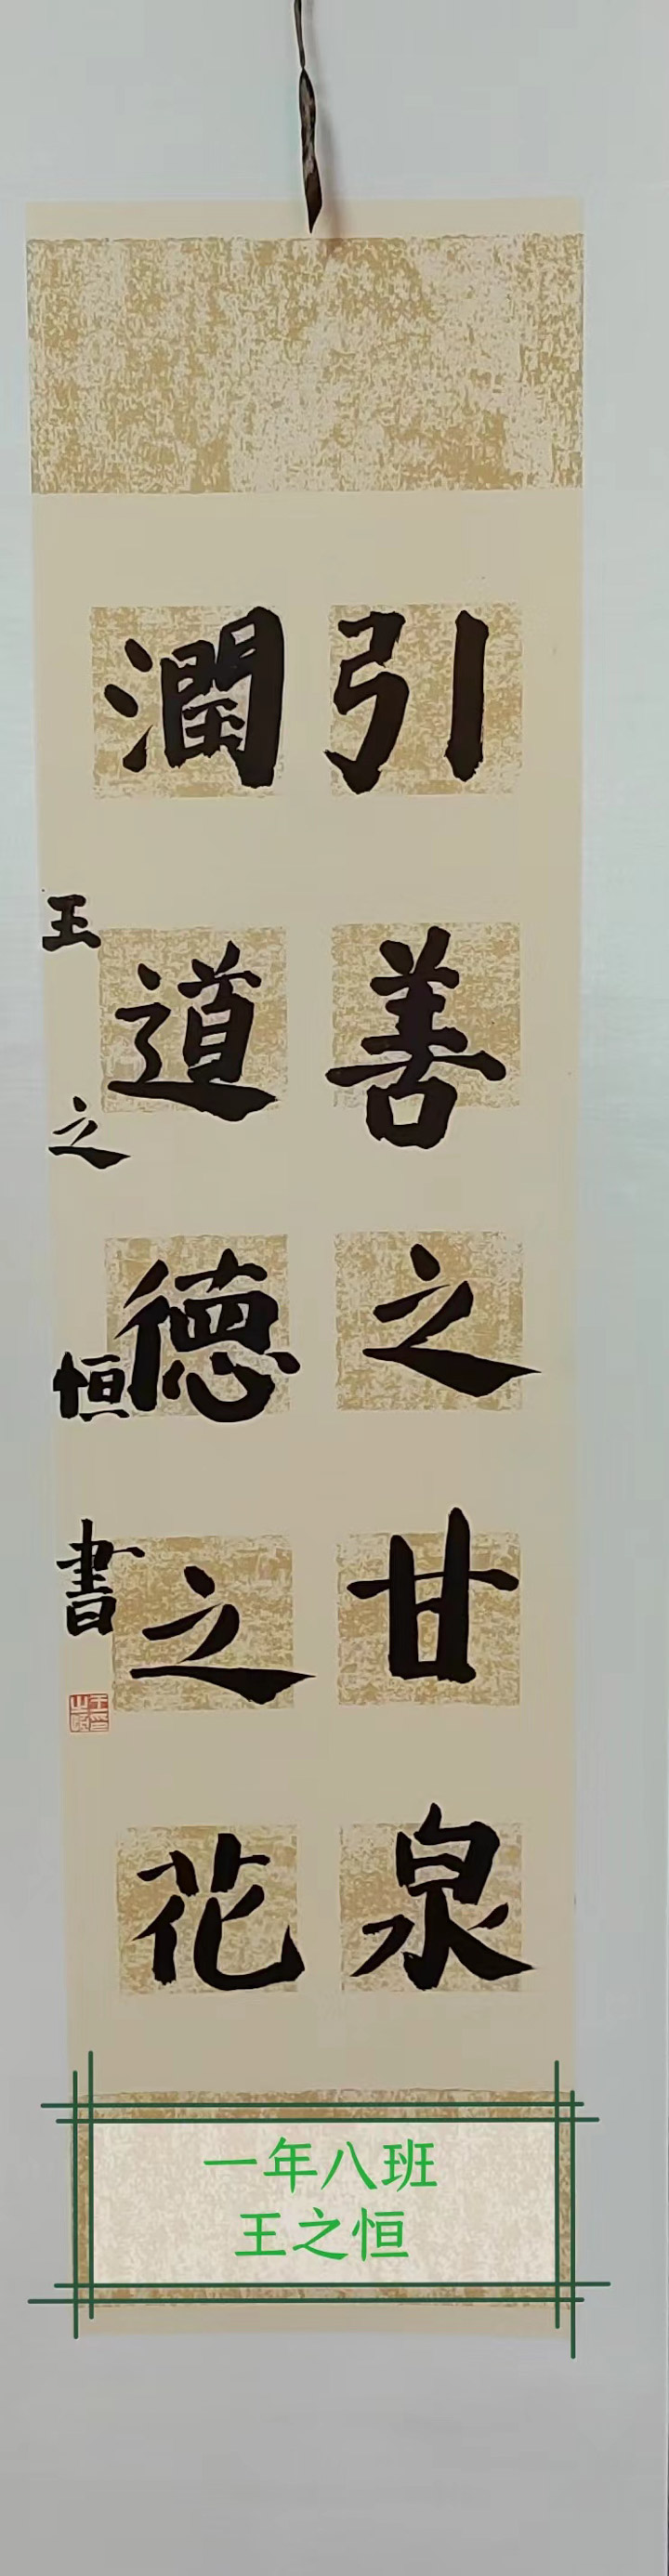 引善之甘泉
潤道德之花
王之恒書
一年八班
王之恒